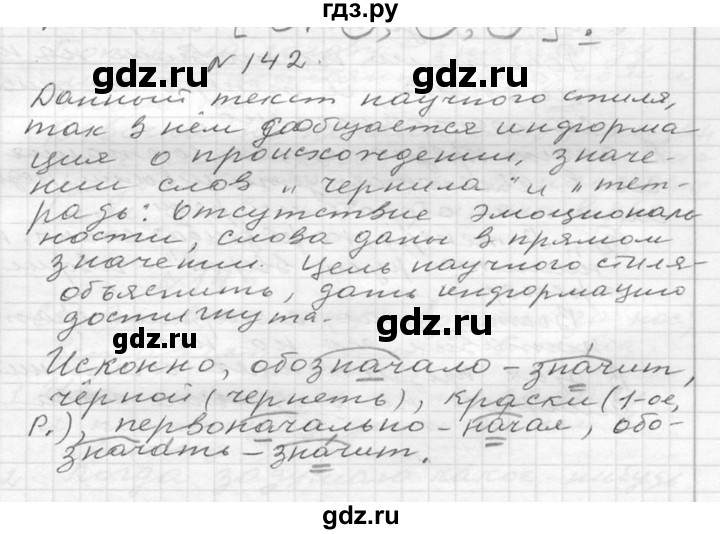 гдз.ру
№ 142.
gdz.ru gdz.ru
Данный текст научного стиля,
так в нём сообщается информа
ция о происхождении, значе-
нии слов „чернила" и „тет-
радь: Отсутствие эмоциональ
ности, слова даны в прямом
значении. Цель научного стиля-
объяснить, дать информацию
достигнута.
gdz.ru gdz.ru
Исконно, обозначало - значит,
чёрной (чернеть), краски (1-ое,
Р.), первоначально - начал, обо-
значать - значит.
gdz.ru gdz.ru